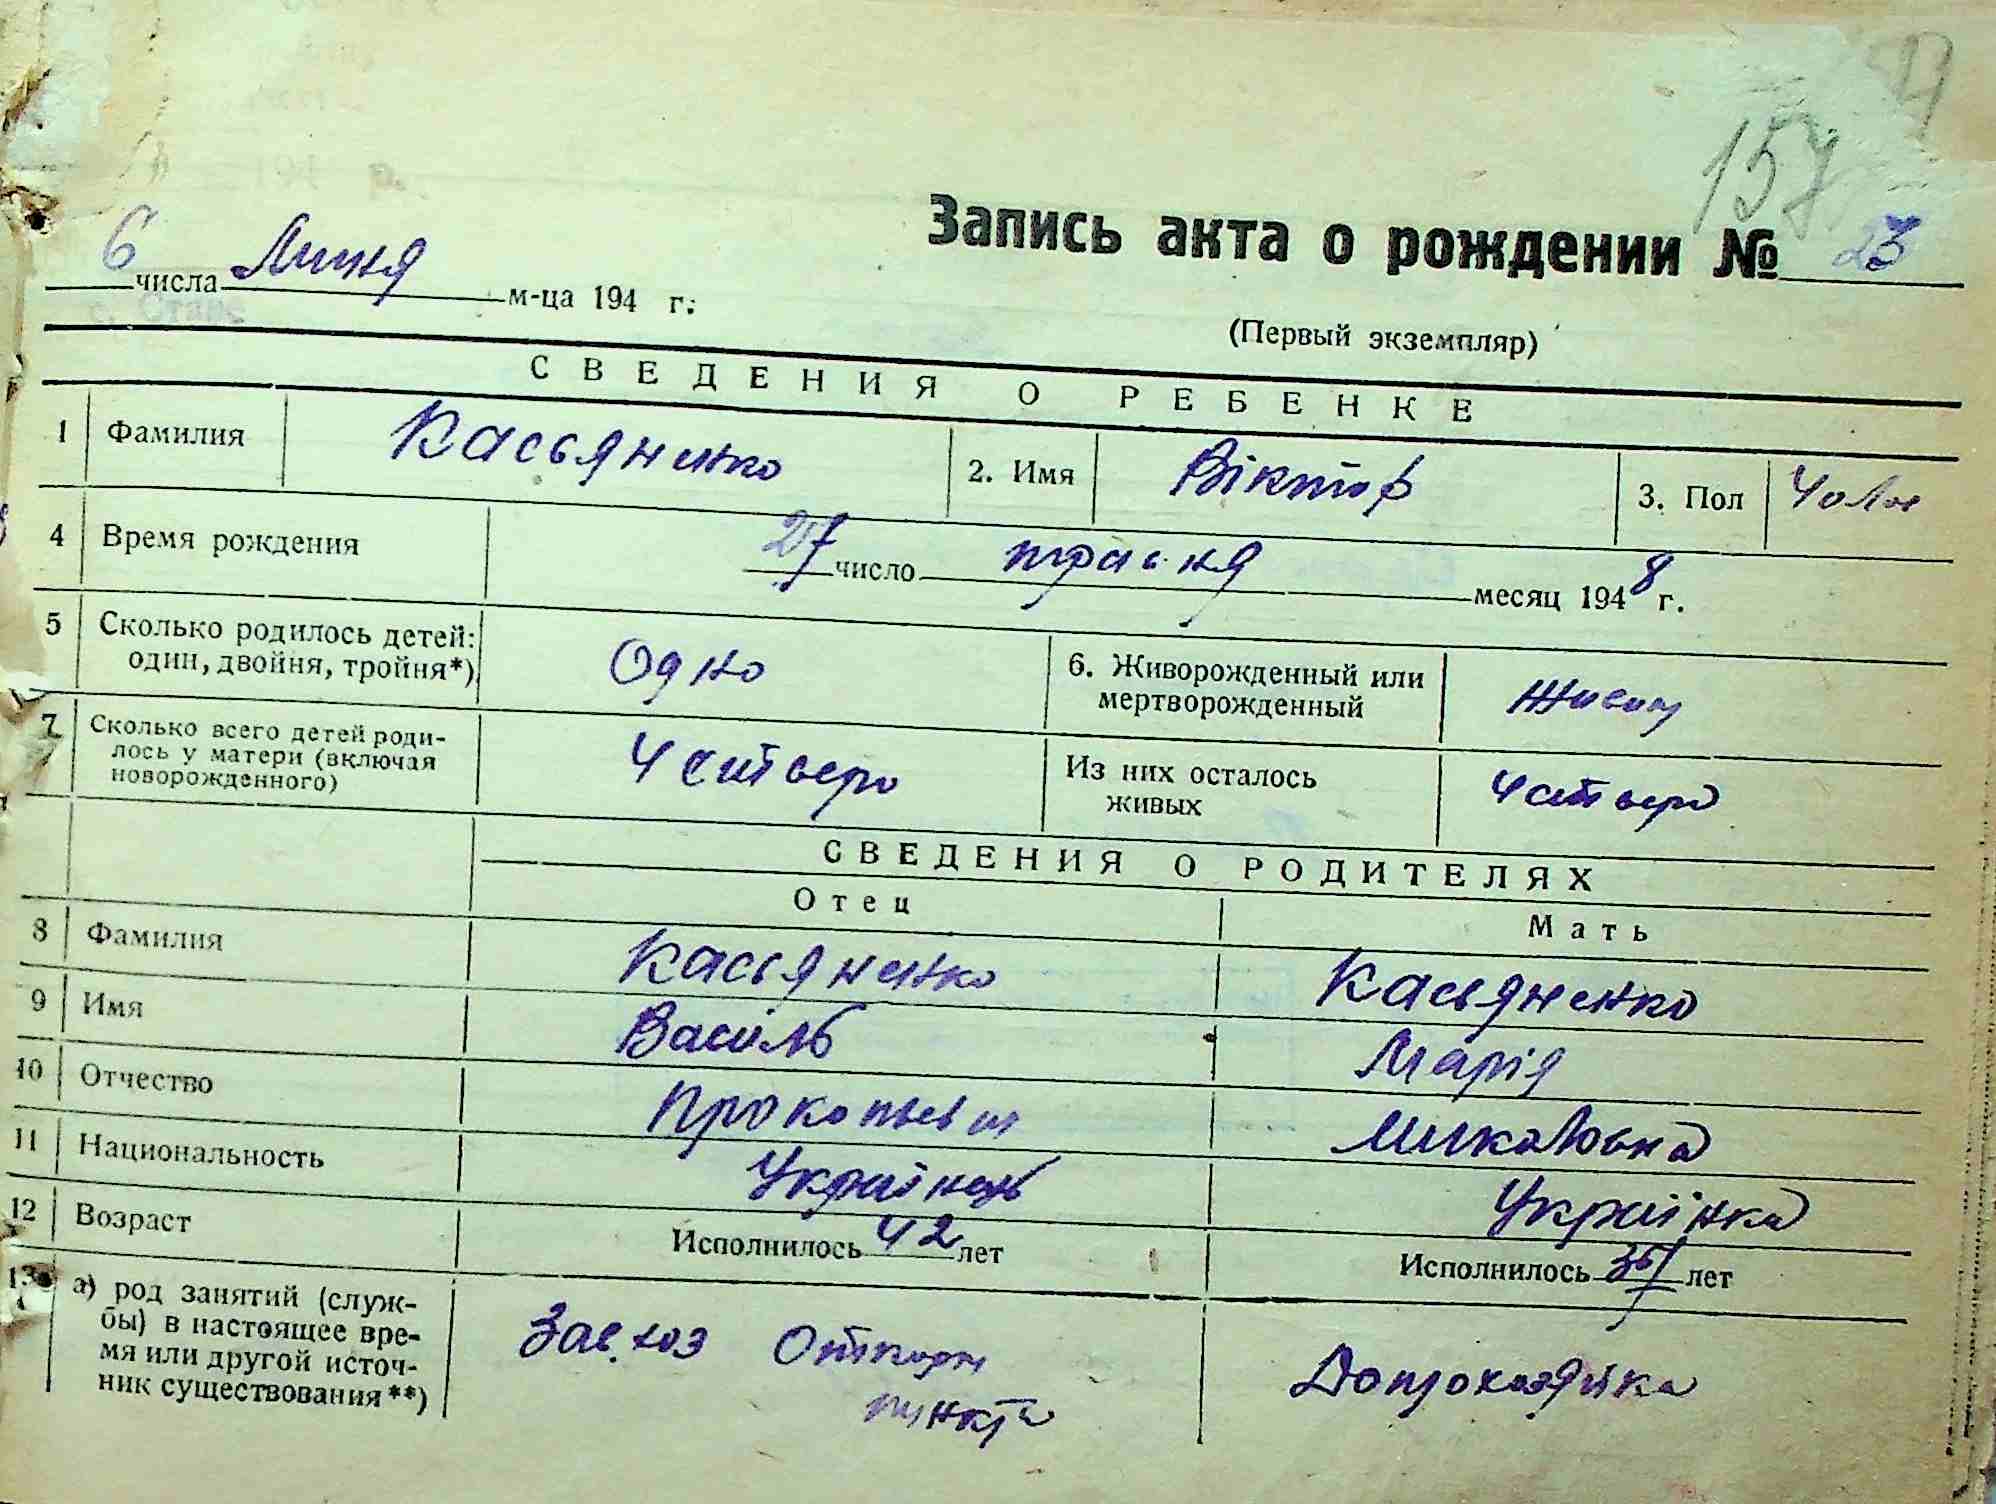 157
Запись акта о рождении № 23
6 числа Липня м-ца 194 г.
(Первый экземпляр)
СВЕДЕНИЯ О РЕБЕНКЕ
1 Фамилия Касьяненко 2. Имя Віктор 3. Пол Чолов
4 Время рождения 27 число травня месяц 1948 г.
5 Сколько родилось детей: один, двойня, тройня*) Одно 6. Живорожденный или мертворожденный Живим
7 Сколько всего детей родилось у матери (включая новорожденного) Четверо Из них осталось живых Четверо
СВЕДЕНИЯ О РОДИТЕЛЯХ
Отец Мать
8 Фамилия Касьяненко Касьяненко
9 Имя Василь Марія
10 Отчество Прокопьевич Миколовна
11 Национальность Українець Українка
12 Возраст Исполнилось 42 лет Исполнилось лет
13 а) род занятий (службы) в настоящее время или другой источник существования**) Зав.хоз Откорм пункта Домохозяйка